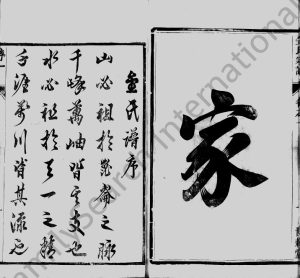 家
氏譜序
山必祖於崑崙之脉
千峰萬岫皆其支也
水必祖於天一之精
萬川皆其也
FamilySearch International